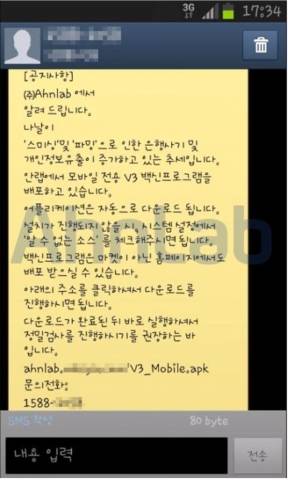 3G
17:34
[공지사항]
㈜Ahnlab 에서
알려 드립니다.
나날이
'스미싱'및 '파밍'으로 인한 은행사기 및
개인정보유출이 증가하고 있는 추세입니다.
안랩에서 모바일 전용 V3 백신프로그램을
배포하고 있습니다.
어플리케이션은 자동으로 다운로드 됩니다.
설치가 진행되지 않을 시, 시스템 설정에서
'알 수 없는 소스' 를 체크해주시면 됩니다.
백신프로그램은 마켓이 아닌 홈페이지에서도
배포 받으실 수 있습니다.
아래의 주소를 클릭하셔서 다운로드를
진행하시면 됩니다.
다운로드가 완료된 뒤 바로 실행하셔서
정밀검사를 진행하시기를 권장하는 바
입니다.
ahnlab. /V3_Mobile.apk
문의전화.
1588-
AhnLab
SMS 작성
80 byte
내용 입력
전송